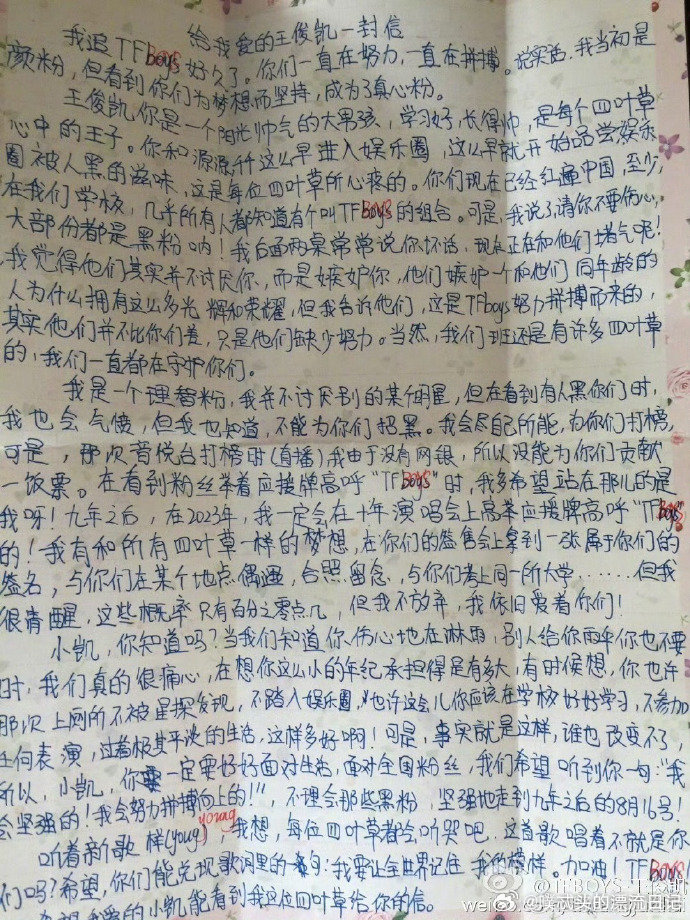 给我爱的王俊凯一封信
我追TFboys好久了。你们一直在努力,一直在拼搏。说实话,我当初是
颜粉,但看到你们为梦想而坚持,成为了真心粉。
王俊凯,你是一个阳光帅气的大男孩,学习好,长得帅,是每个四叶草
心中的王子。你和源源,千千这么早进入娱乐圈,这么早就开始品尝娱乐
圈被人黑的滋味,这是每位四叶草所心疼的。你们现在已经红遍中国,至少,
在我们学校,几乎所有人都知道有个叫TFBOYS的组合。可是,我说了请你不要伤心,
大部份都是黑粉呐!我后面两桌常常说你坏话,现在正在和他们堵气呢!
我觉得他们其实并不讨厌你,而是嫉妒你,他们嫉妒一个和他们同年龄的
人为什么拥有这么多光辉和荣耀,但我告诉他们,这是TFboys努力拼搏而来的,
其实他们并不比你们差,只是他们缺少努力。当然,我们班还是有许多四叶草
的,我们一直都在守护你们。
我是一个理智粉,我并不讨厌别的某个明星,但在看到有人黑你们时,
我也会气愤,但我也知道,不能为你们招黑。我会尽自己所能,为你们打榜,
可是,那次音悦台打榜时(直播)我由于没有网银,所以没能为你们贡献
一饭票。在看到粉丝举着应援牌高呼“TFBOYS”时,我多希望站在那儿的是
我呀!九年之后,在2023年,我一定会在十年演唱会上高举应援牌高呼“TFBOYS”
的!我有和所有四叶草一样的梦想,在你们的签售会上拿到一张属于你们的
签名,与你们在某个地点偶遇,合照留念,与你们考上同一所大学……但我
很清醒,这些概率只有百分之零点几,但我不放弃,我依旧爱着你们!
小凯,你知道吗?当我们知道你伤心地在淋雨,别人给你雨伞你也不要
时,我们真的很痛心,在想你这么小的年纪承担得是有多大,有时候想,你也许
那次上网所不被星探发现,不踏入娱乐圈,也许这会儿你应该在学校好好学习,不参加
任何表演,过着极其平淡的生活,这样多好啊!可是,事实就是这样,谁也改变不了,
所以,小凯,你一定要好好面对生活,面对全国粉丝,我们希望听到你一句:“我
会坚强的!我会努力拼搏向上的!”,不理会那些黑粉,坚强地走到九年之后的8月16号!
听着新歌样(yong)young,我想,每位四叶草都会听哭吧,这首歌唱着不就是你
们吗?希望,你们能兑现歌词里的一句:我要让全世界记住我的榜样。加油!TFBOYS!
我爱的小凯能看到我这位四叶草给你的信。
@TFBOYS-王俊凯
weibo
的漂流日记